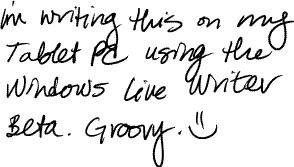 i'm writing this on my
Tablet PC using the
Windows Live Writer
Beta. Groovy. :)